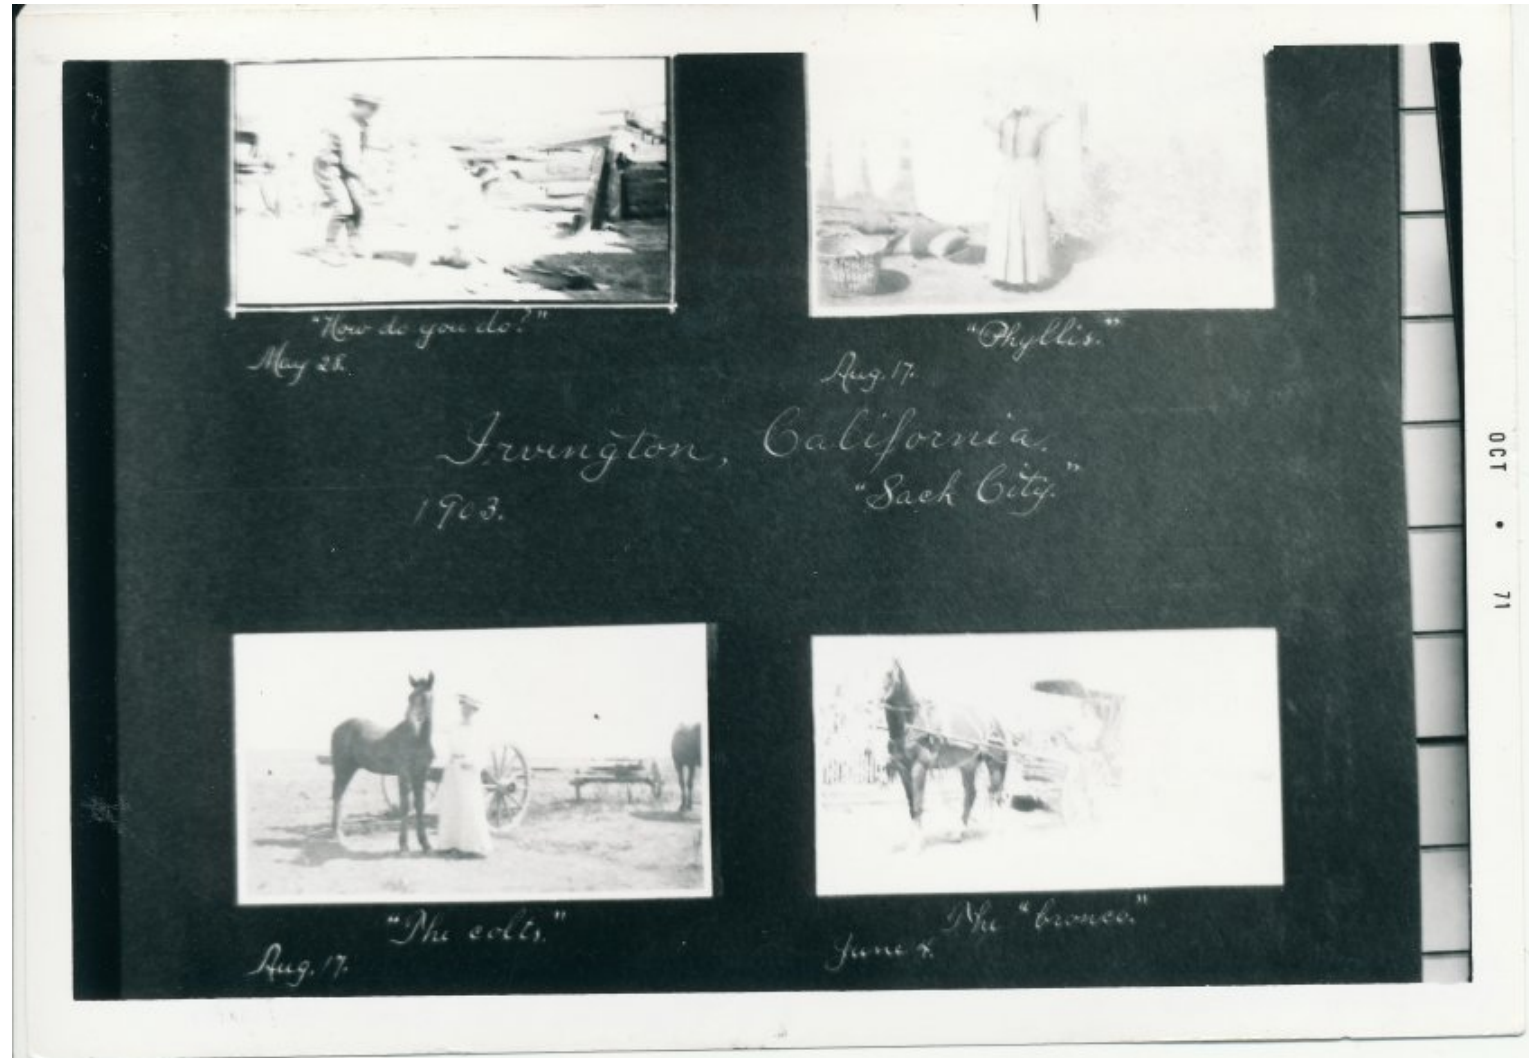 "How do you do?"
May 28.
"Phyllis."
Aug. 17.
Irvington, California.
1903.
"Sack City."
"The colts."
Aug. 17.
The "bronco."
June 4.
OCT • 71